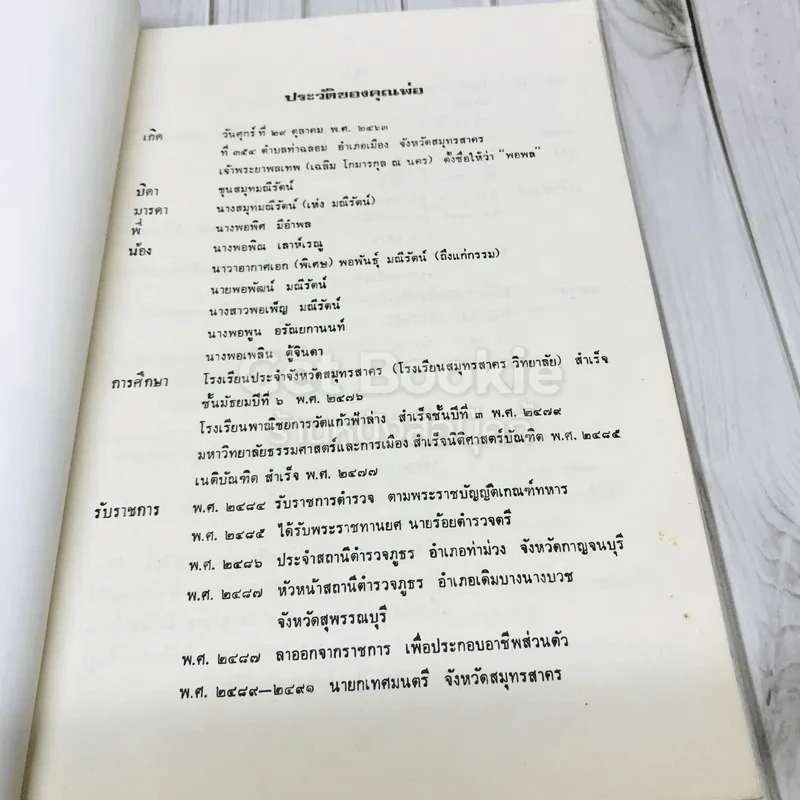 ประวัติของคุณพ่อ
เกิด วันศุกร์ ที่ ๒๙ ตุลาคม พ.ศ. ๒๔๖๓
ที่ ๓๕๔ ตำบลท่าฉลอม อำเภอเมือง จังหวัดสมุทรสาคร
เจ้าพระยาพลเทพ (เฉลิม โกมารกุล ณ นคร) ตั้งชื่อให้ว่า "พอพล"
บิดา ขุนสมุทมณีรัตน์
มารดา นางสมุทมณีรัตน์ (เห่ง มณีรัตน์)
พี่ นางพอพิศ มีอำพล
น้อง นางพอพิณ เลาห์เรณู
นาวาอากาศเอก (พิเศษ) พอพันธุ์ มณีรัตน์ (ถึงแก่กรรม)
นายพอพัฒน์ มณีรัตน์
นางสาวพอเพ็ญ มณีรัตน์
นางพอพูน อรัณยกานนท์
นางพอเพลิน ตู้จินดา
การศึกษา โรงเรียนประจำจังหวัดสมุทรสาคร (โรงเรียนสมุทรสาคร วิทยาลัย) สำเร็จ
ชั้นมัธยมปีที่ ๖ พ.ศ. ๒๔๗๖
โรงเรียนพาณิชยการวัดแก้วฟ้าล่าง สำเร็จชั้นปีที่ ๓ พ.ศ. ๒๔๗๙
มหาวิทยาลัยธรรมศาสตร์และการเมือง สำเร็จนิติศาสตร์บัณฑิต พ.ศ. ๒๔๘๕
เนติบัณฑิต สำเร็จ พ.ศ. ๒๔๗๗
รับราชการ พ.ศ. ๒๔๘๔ รับราชการตำรวจ ตามพระราชบัญญัติเกณฑ์ทหาร
พ.ศ. ๒๔๘๕ ได้รับพระราชทานยศ นายร้อยตำรวจตรี
พ.ศ. ๒๔๘๖ ประจำสถานีตำรวจภูธร อำเภอท่าม่วง จังหวัดกาญจนบุรี
พ.ศ. ๒๔๘๗ หัวหน้าสถานีตำรวจภูธร อำเภอเดิมบางนางบวช
จังหวัดสุพรรณบุรี
พ.ศ. ๒๔๘๗ ลาออกจากราชการ เพื่อประกอบอาชีพส่วนตัว
พ.ศ. ๒๔๘๙—๒๔๙๑ นายกเทศมนตรี จังหวัดสมุทรสาคร
Get Bookie